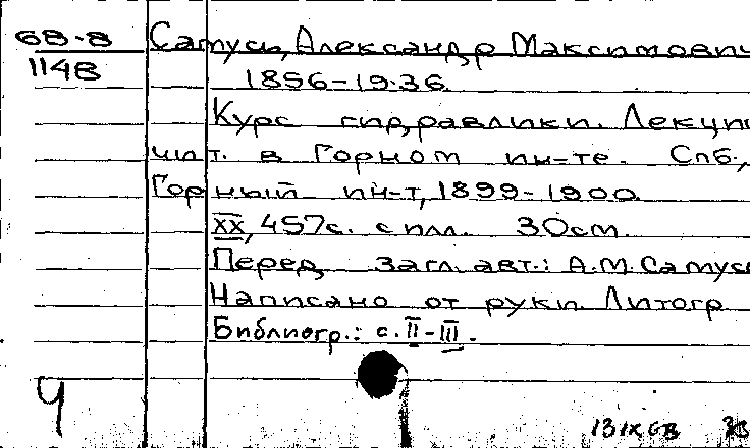 68-8
1148
Сатусь, Александр Максимович
1856-1936
Курс гидравлики. Лекции
чит. в Горном ин-те. Спб.,
Горный ин-т, 1899-1900.
XX, 457с. с илл. 30см.
Перед загл. авт.: А.М. Сатусь
Написано от руки. Литогр
Библиогр.: с. II-III.
Ч
13 IX 68